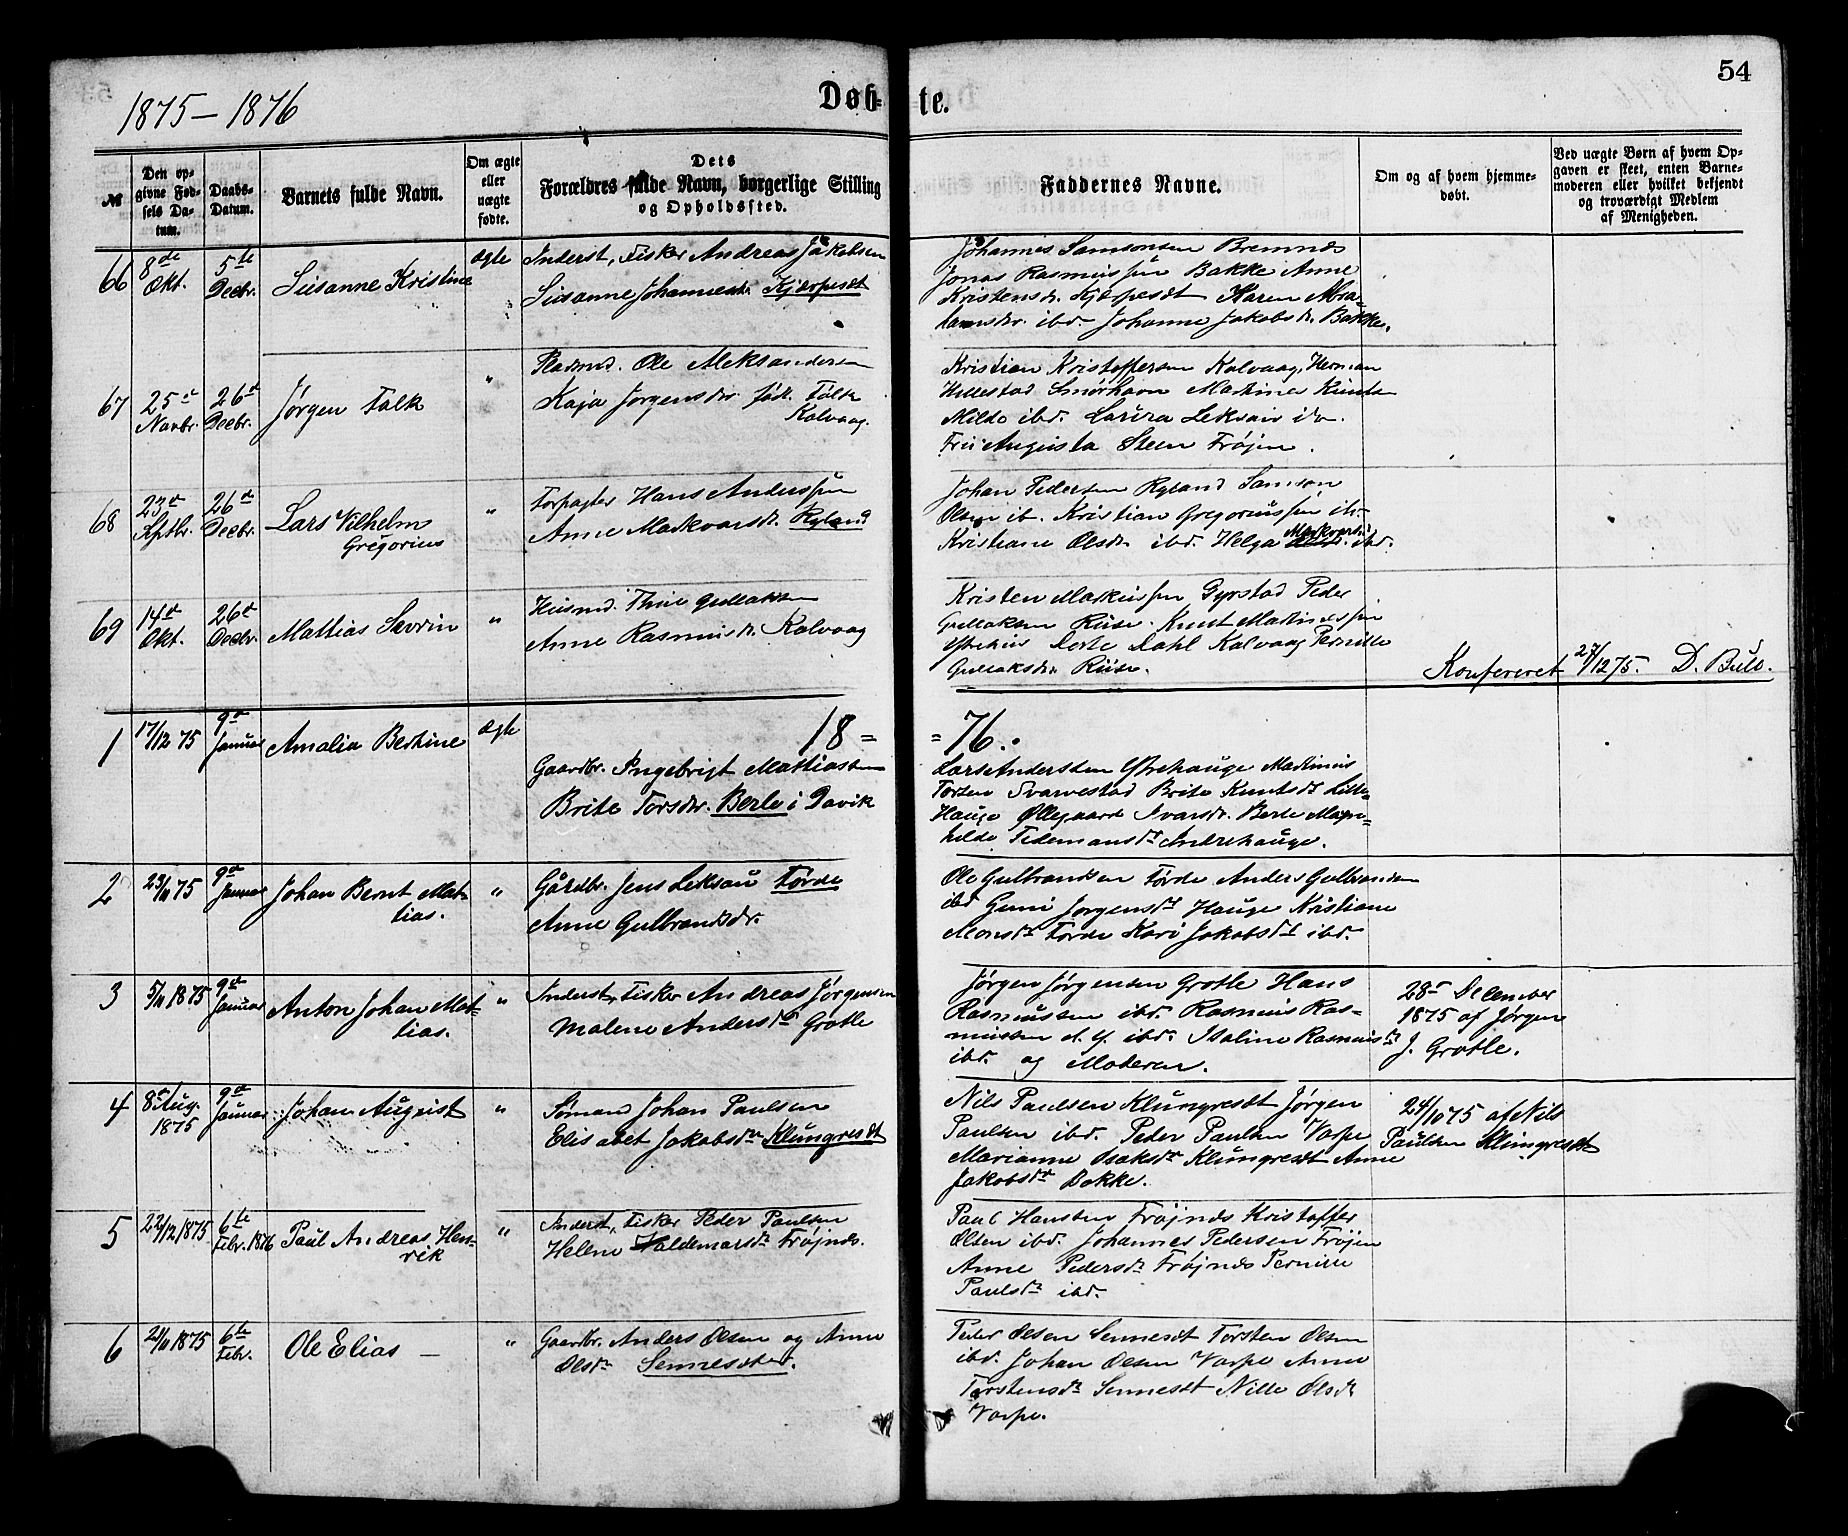 54
1875 – 1876
Døb- te.
№
Den op-
givne Fød-
sels Da-
tum.
Daabs-
Datum.
Barnets fulde Navn.
Om ægte
eller
uægte
fødte.
Dets
Forældres fulde Navn, borgerlige Stilling
og Opholdssted.
Faddernes Navne.
Om og af hvem hjemme-
døbt.
Ved uægte Børn af hvem Op-
gaven er skeet, enten Barne-
moderen eller hvilket bekjendt
og troværdigt Medlem
af Menigheden.
66
8de
Okt.
5te
Decbr.
Susanne Kristine
ægte
Inderst, Fisker Andreas Jakobsen
Susanne Johannesdr. Kjærpesdt
Johannes Samsonsen Bremnes
Jonas Rasmussen Bakke Anne
Kristensdr. Kjærpesdt Karen Abra-
hamsdr. ibd. Johanne Jakobsdr. Bakke.
67
25de
Novbr.
26de
Decbr.
Jørgen Falk
"
Pladsmd. Ole Aleksandersen
Kaja Jørgensdr. født Falk
Kalvaag.
Kristian Kristoffersen Kalvaag, Herman
Hillestad Smørhavn Martines Knuts
Milde ibd. Laura Leksau ibd.
Fru Augusta Steen Frøjen.
68
23de
Sptbr.
26de
Decbr.
Lars Vilhelm
Gregorius
"
Forpagter Hans Anderssen
Anne Markvarsdr. Ryland
Johan Pedersen Ryland Samson
Olsen ib. Kristian Gregoriussen ib.
Kristiane Olsdr. ibd. Helga Markvardsdr. ibd.
69
14de
Okt.
26de
Decbr.
Mattias Sevrin
"
Husmd. Thue Gullaksen
Anne Rasmusdr. Kalvaag
Kristen Markussen Gyrstad Peder
Gullaksen Riise. Knut Martinussen
Dorte Dahl Kalvaag Pernille
Gullaksdr. Riise.
Konfereret 27/12 75. D. Bull.
18= =76.
1
17/12 75
9de
Januar
Amalia Bertine
ægte
Gaardbr. Ingebrigt Mattiassen
Brite Torsdr. Berle i Davik
Lars Anderssen Ytrehauge Martinus
Torsen Svarvestad Brite Knutsdr Lille-
Hauge Øllegaard Ivarsdr. Berle Magn-
hilde Tedemansdr Indrehauge.
2
23/11 75
9de
Januar
Johan Bernt Mat-
tias.
"
Gårdbr. Jens Leksau Førde
Anne Gulbrandsdr.
Ole Gulbrandsen Førde Anders Gulbrandsen
ibd Guni Jørgensdr Hauge Kristiane
Monsdr Førde Kari Jakobsdr ibd.
3
5/11 1875
9de
Januar
Anton Johan Mat-
tias.
"
Inderst, Fisker Andreas Jørgensen
Malene Andersdr Grotle
Jørgen Jørgensen Grotle Hans
Rasmussen ibd. Rasmus Ras-
mussen d. y. ibd. Italine Rasmusdr
ibd. og Moderen.
28de December
1875 af Jørgen
J. Grotle.
4
8de Aug.
1875
9de
Januar
Johan August
"
Sømand Johan Paulsen
Elisabet Jakobsdr Klungresdt
Nils Paulsen Klungresdt Jørgen
Paulsen ibd. Peder Paulsen Varpe
Marianne Isaksdr Klungresdt Anne
Jakobsdr Bakke.
24/10 75 af Nils
Paulsen Klungresdt
5
22/12 1875
6te
Febr. 1876
Paul Andreas Hen-
rik
"
Inderst, Fisker Peder Paulsen
Helene Valdemarsdr Frøjnes.
Paul Hanssen Frøjnes Kristoffer
Olsen ibd. Johannes Pedersen Frøjen
Anne Pedersdr Frøjnes Pernille
Paulsdr ibd.
6
21/11 1875
6te
Febr.
Ole Elias –
"
Gaardbr. Anders Olsen og Anne
Olsdr Sennesdtd.
Peder Olsen Sennesdt Torsten Olsen
ibd. Johan Olsen Varpe Anne
Torstensdr Sennesdt Nille Olsdr
Varpe.